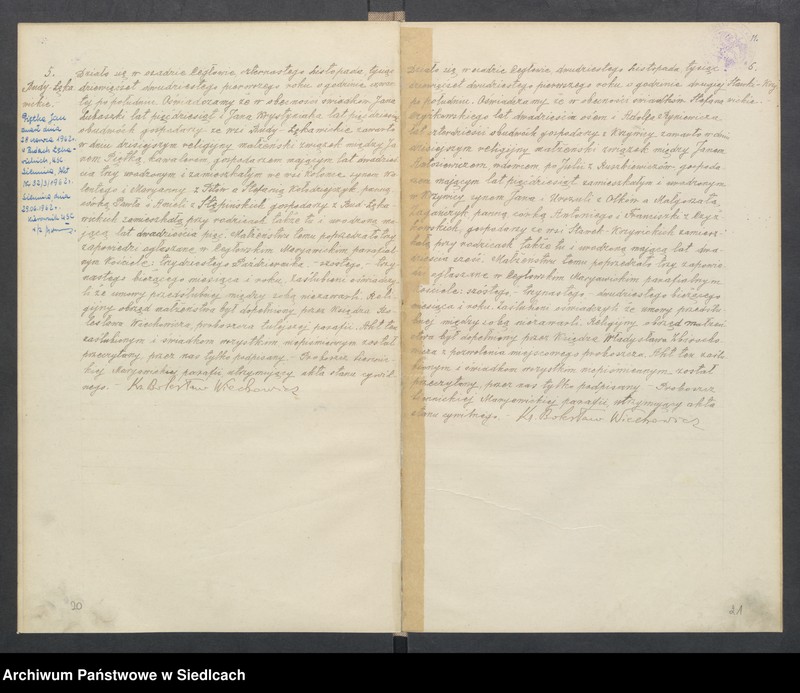 5.
Budy Łęka-
mickie.
Piętka Jan
zmarł dnia
28 czerwca 1962 r.
w Budach
USC
Siennica Akt
Nr 32/3/1962 r.
Siennica dnia
29.06.1962 r.
Kierownik USC
Działo się w osadzie Cegłowie, czternastego Listopada, tysiąc
dziewięćset dwudziestego pierwszego roku o godzinie
po południu. Oświadczamy że w obecności świadków Jana
lat pięćdziesiąt i Jana lat pięćdziesiąt
obudwóch gospodarzy, ze wsi Budy Łękamickie zawarto
w dniu dzisiejszym religijny małżeński związek między Ja-
nem Piętką, kawalerem, gospodarzem mającym lat dwadzieś-
cia trzy urodzonym i zamieszkałym na wsi Kolonie synem Wa-
lentego i Maryanny z i Stefanią Kołodziejczyk panną
córką Pawła i Anieli z Stępińskich, gospodarzy z Bud Łęka-
mickich zamieszkałą przy rodzicach także tu i urodzoną ma-
jącą lat dwadzieścia pięć. Małżeństwo temu poprzedzało trzy
zapowiedzi ogłaszane w Cegłowskim Maryawickim parafial-
nym Kościele: trzydziestego Października – szóstego – trzy-
nastego bieżącego miesiąca i roku. Zaślubieni oświadczy-
li że umowy przedślubnej między sobą nie zawarli. Reli-
gijny obrzęd małżeństwa był dopełniony przez Księdza Bo-
lesława Wiechowicza, proboszcza tutejszej parafii. Akt ten
zaślubionym i świadkom wszystkim niepiśmiennym został
przeczytany, przez nas tylko podpisany. – Proboszcz
kiej Maryawickiej parafii utrzymujący akta stanu cywil-
nego. – Ks. Bolesław Wiechowicz
20
11.
6.
Działo się w osadzie Cegłowie, dwudziestego Listopada, tysiąc
dziewięćset dwudziestego pierwszego roku o godzinie drugiej
po południu. Oświadczamy, że w obecności świadków Stefana
lat pięćdziesiąt osiem i Adolfa
lat czterdzieści obudwóch gospodarzy z zawarto w dniu
dzisiejszym religijny małżeński związek między Janem
wdowcem po Julii z gospoda-
rzem mającym lat pięćdziesiąt zamieszkałym i urodzonym
w synem Jana i Urszuli z i Małgorzatą
panną, córką Antoniego i Franciszki z
gospodarzy ze wsi zamiesz-
kałą przy rodzicach także tu i urodzoną mającą lat dwa-
dzieścia sześć. Małżeństwu temu poprzedzało trzy zapowie-
dzi ogłaszane w Cegłowskim Maryawickim parafialnym
Kościele: szóstego – trzynastego – dwudziestego bieżącego
miesiąca i roku. Zaślubieni oświadczyli że umowy przedślu-
bnej między sobą nie zawarli. Religijny obrzęd małżeń-
stwa był dopełniony przez Księdza Władysława
z pozwolenia miejscowego proboszcza. Akt ten zaślu-
bionym i świadkom wszystkim niepiśmiennym został
przeczytany, przez nas tylko podpisany – Proboszcz
Maryawickiej parafii utrzymujący akta
stanu cywilnego. – Ks. Bolesław Wiechowicz
21
Archiwum Państwowe w Siedlcach